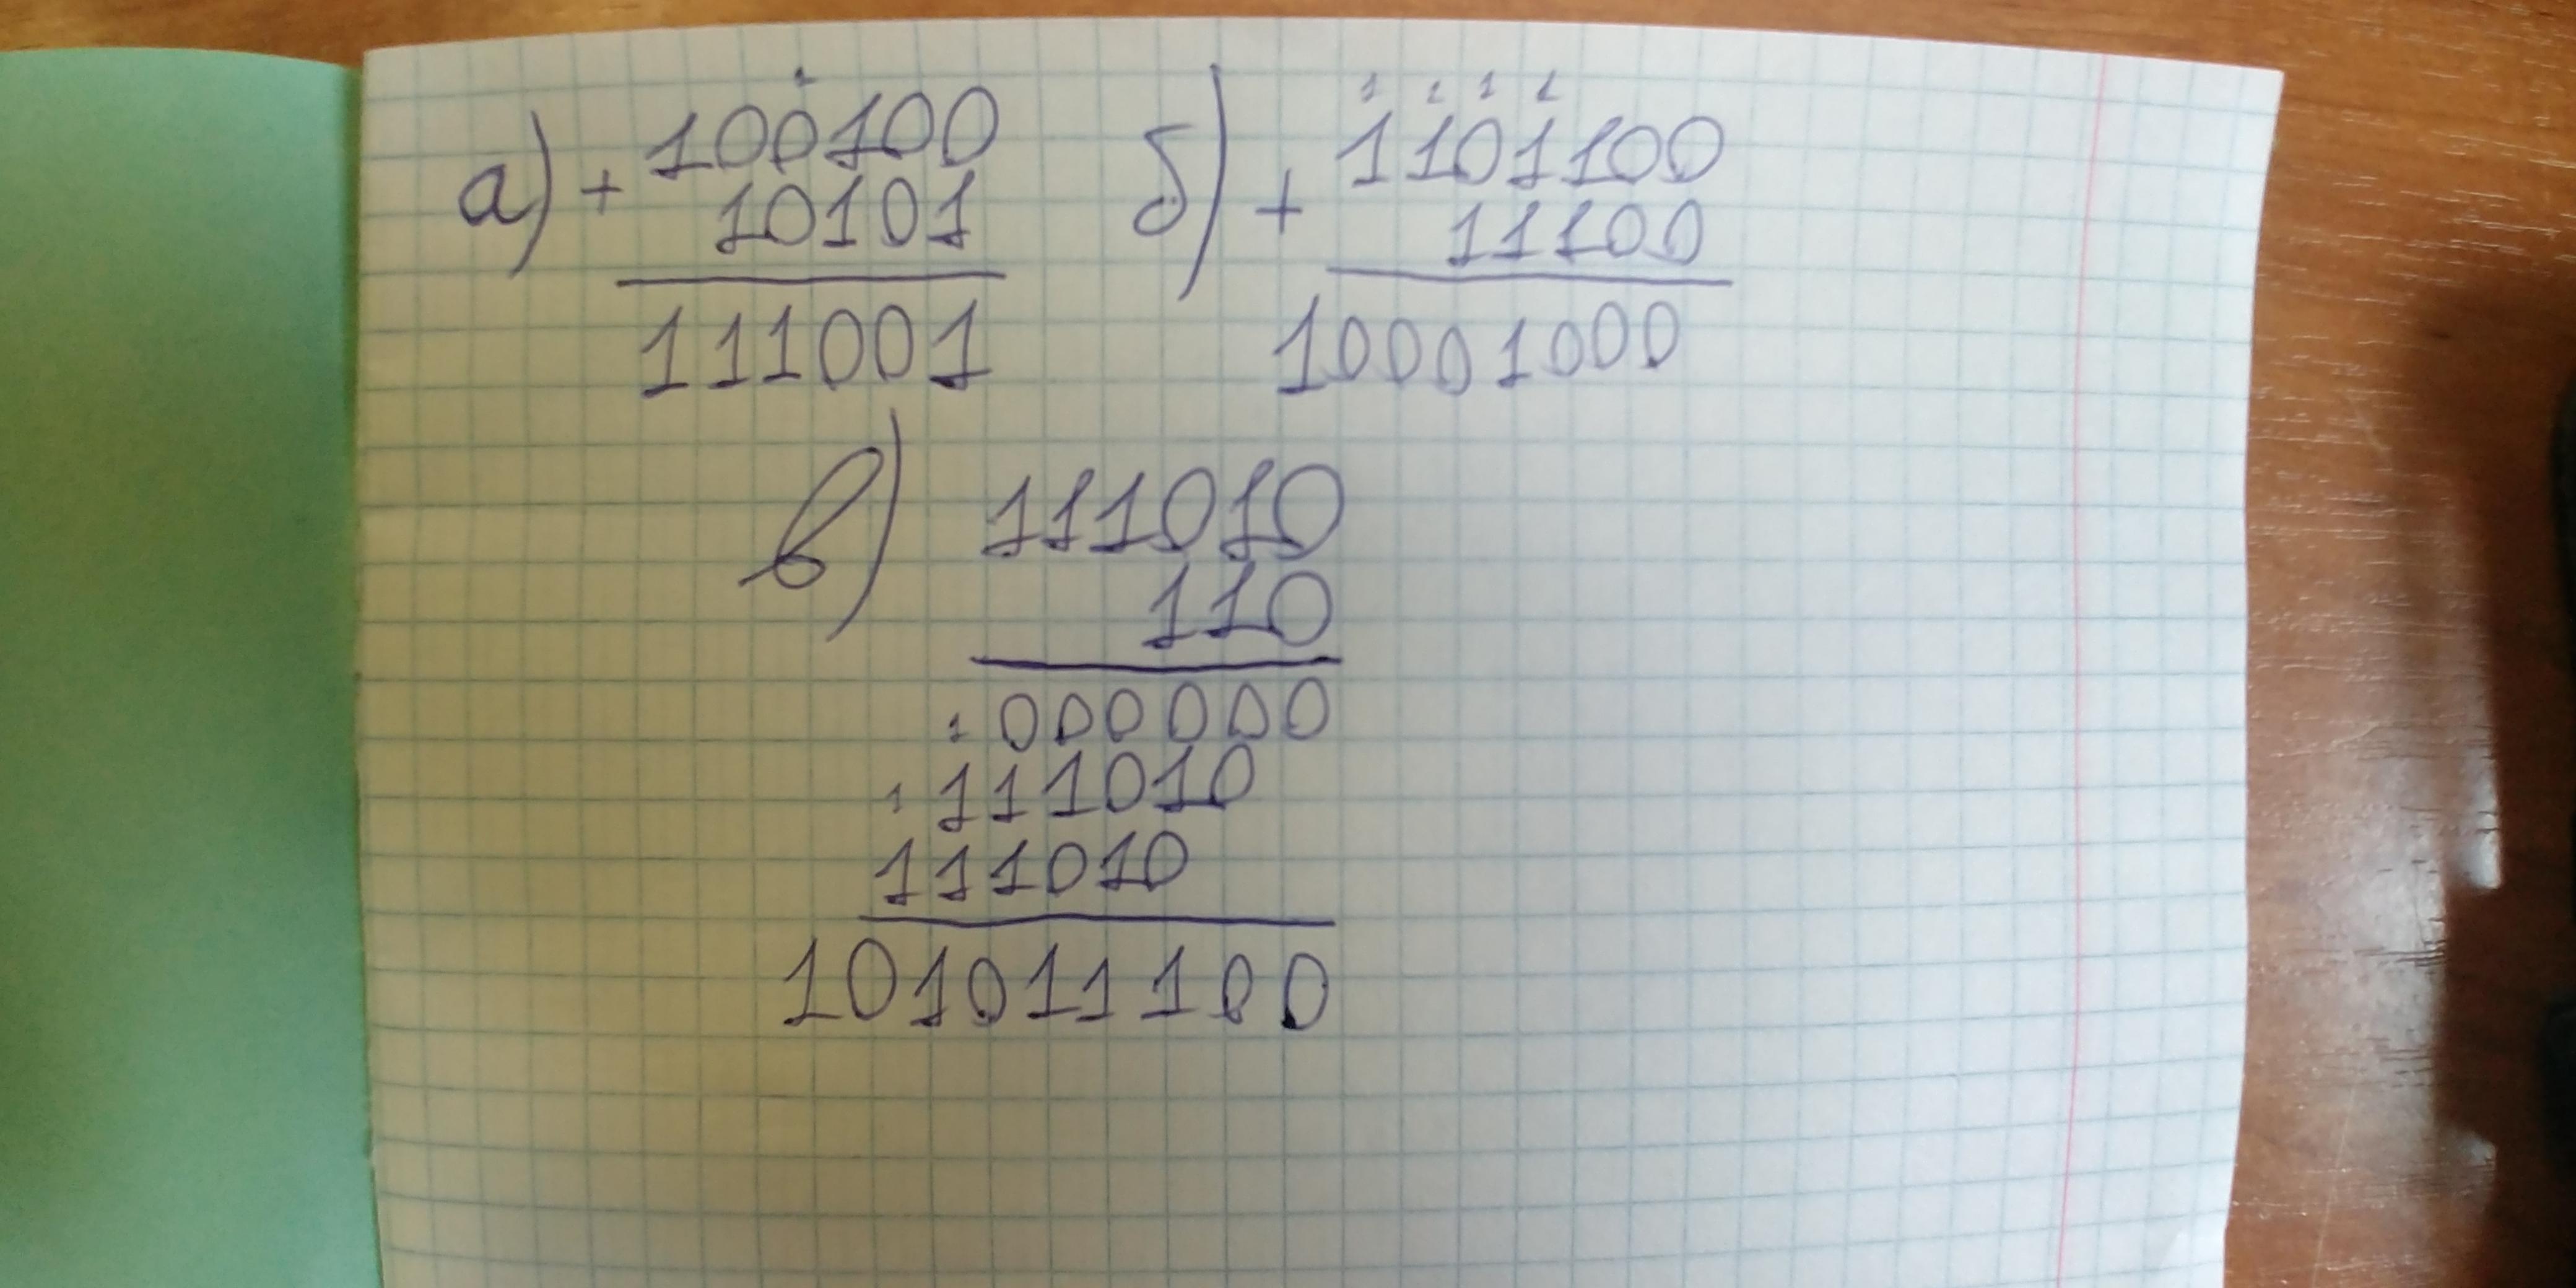 а) + 100100
10101
111001
1 1 1 1
б) + 1101100
11100
10001000
в) 111010
110
1 000000
1 111010
111010
101011100